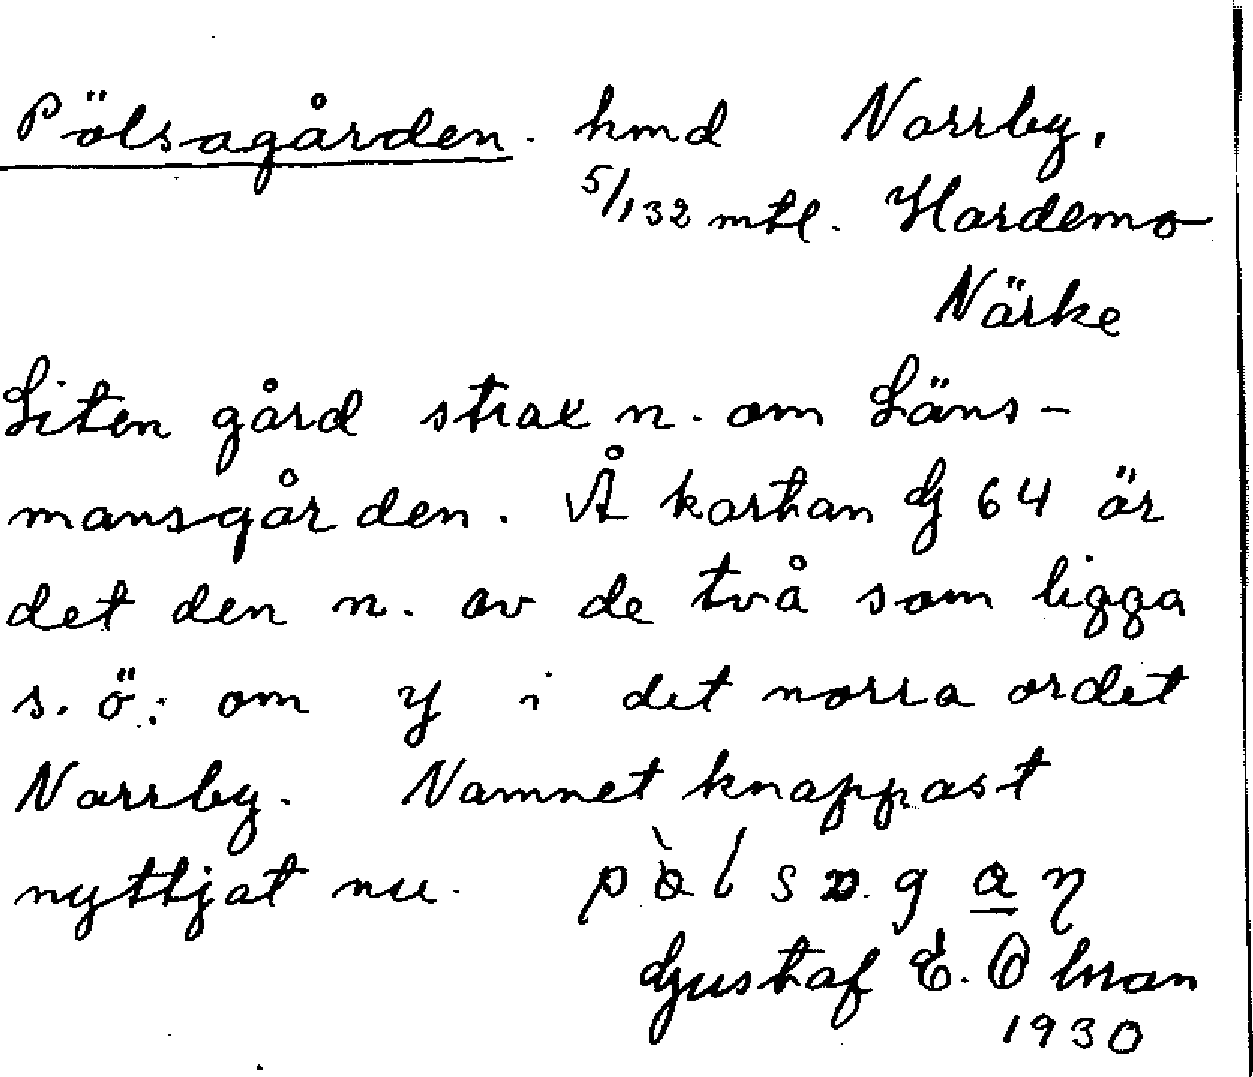 Pölsagården. hmd Norrby,
5/132 mtl. Hardemo
Närke
Liten gård strax n. om Läns-
mansgården. Å kartan G 64 är
det den n. av de två som ligga
s. ö. om y i det norra ordet
Norrby. Namnet knappast
nyttjat nu.
Gustaf E. Ohman
1930